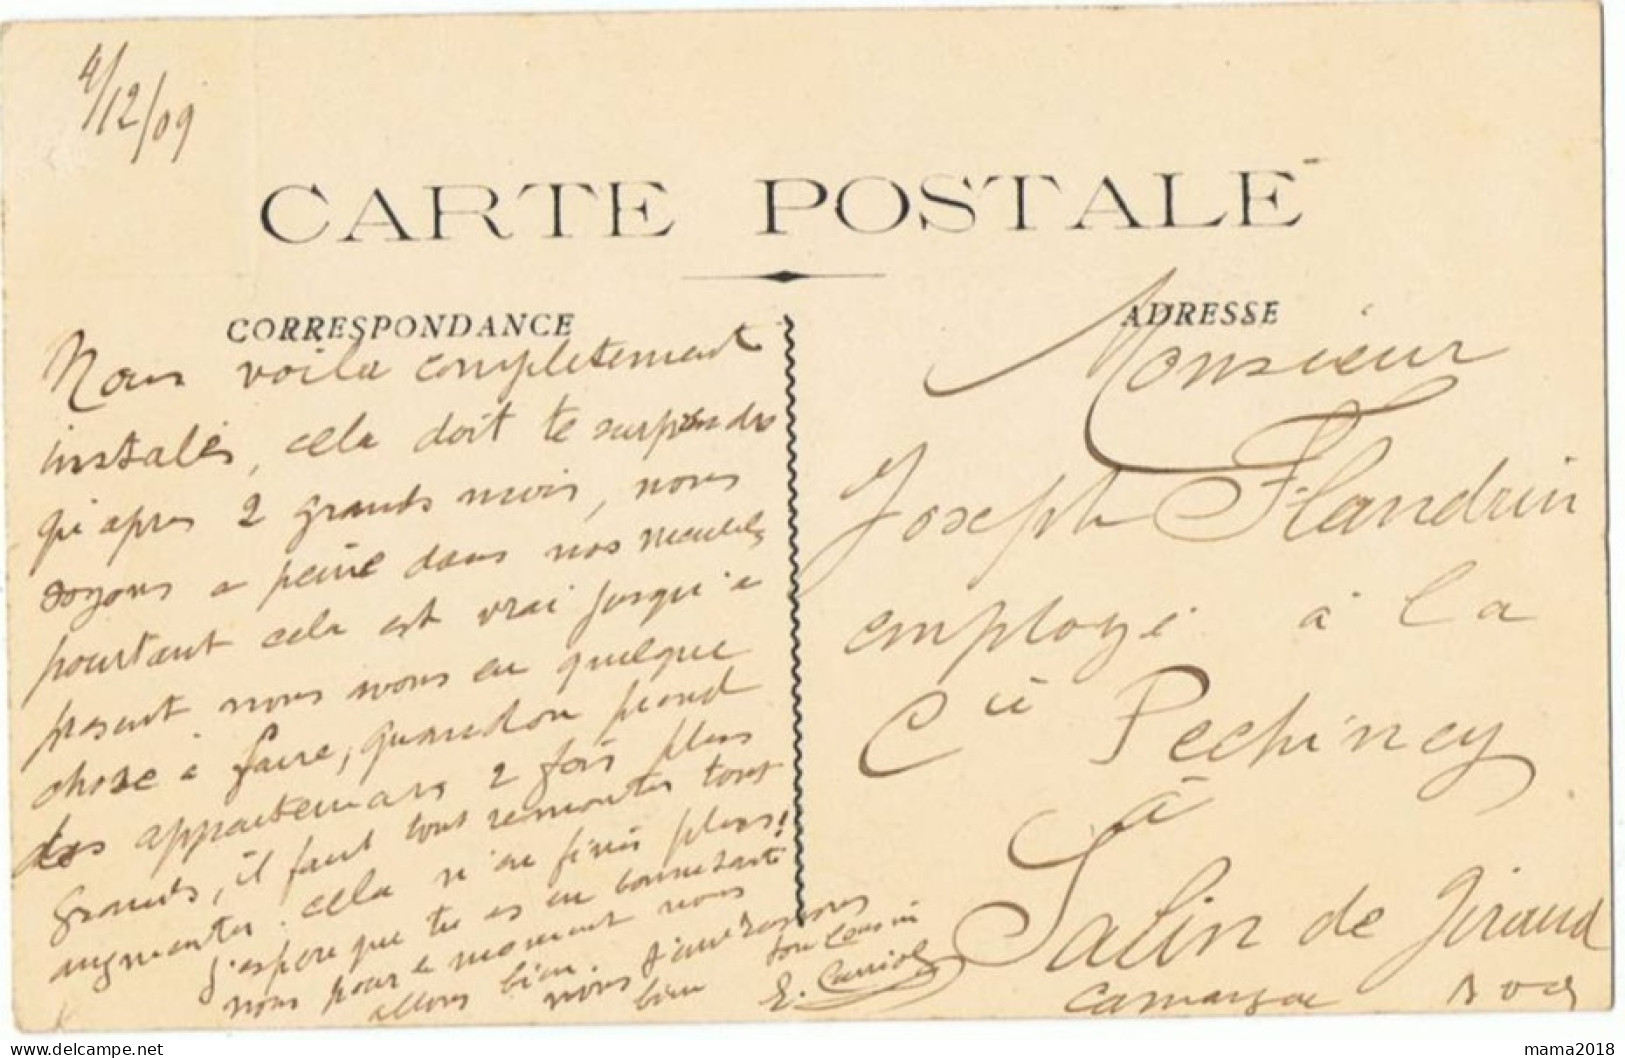 4/12/09
CARTE POSTALE
CORRESPONDANCE
Nous voila completement
instalés, cela doit te surprendre
qu'apres 2 grands mois, nous
soyons a peine dans nos meubles
pourtant cela est vrai jusqu'a
present nous avons eu quelque
chose à faire, quandon prend
des appartemars 2 fois plus
grands, il faut tout remonter tout
augmenter. cela n'en finis plus!
J'espere que tu es en bonne santé
nous pour e moment nous
allons bien.
nous t'embrassons
bien
ton Cousin
E. Curriol
ADRESSE
Monsieur
Joseph Flandrin
employé à la
Cie Pechiney
à
Salin de Giraud
Camargue B d R
mama2018